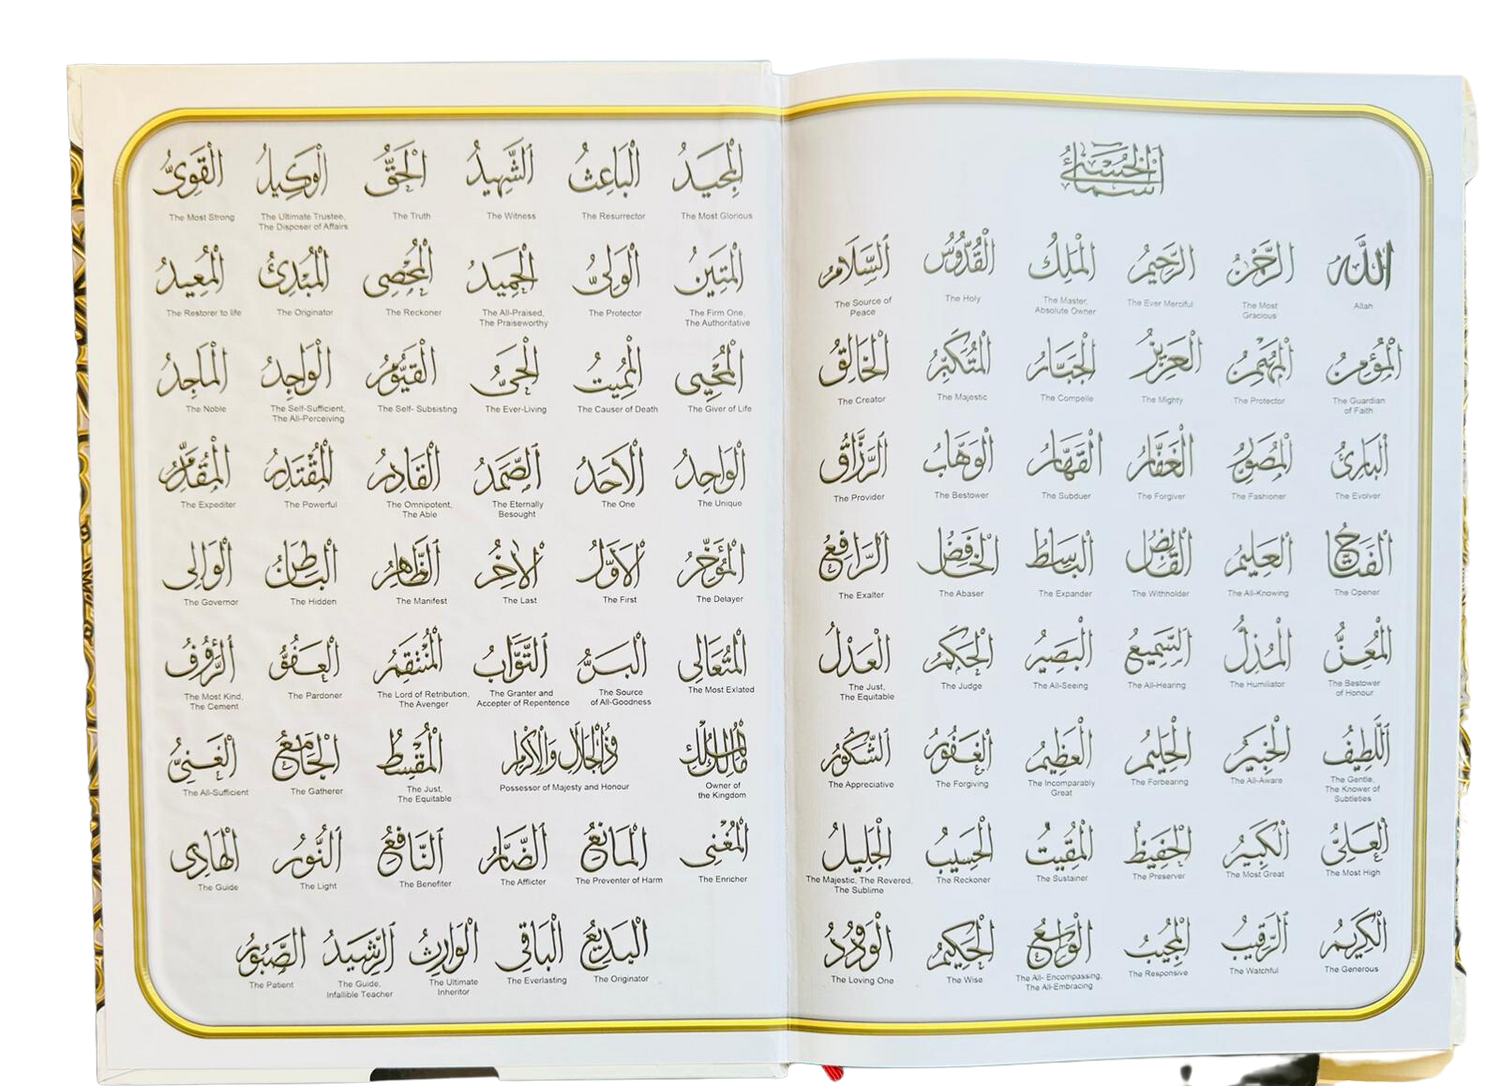 أسماء الحسنى
الله الرحمن الرحيم الملك القدوس السلام
Allah The Most Gracious The Ever Merciful The Master, Absolute Owner The Holy The Source of Peace
المؤمن المهيمن العزيز الجبار المتكبر الخالق
The Guardian of Faith The Protector The Mighty The Compelle The Majestic The Creator
البارئ المصور الغفار القهار الوهاب الرزاق
The Evolver The Fashioner The Forgiver The Subduer The Bestower The Provider
الفتاح العليم القابض الباسط الخافض الرافع
The Opener The All-Knowing The Withholder The Expander The Abaser The Exalter
المعز المذل السميع البصير الحكم العدل
The Bestower of Honour The Humiliator The All-Hearing The All-Seeing The Judge The Just, The Equitable
اللطيف الخبير الحليم العظيم الغفور الشكور
The Gentle, The Knower of Subtleties The All-Aware The Forbearing The Incomparably Great The Forgiving The Appreciative
العلي الكبير الحفيظ المقيت الحسيب الجليل
The Most High The Most Great The Preserver The Sustainer The Reckoner The Majestic, The Revered, The Sublime
الكريم الرقيب المجيب الواسع الحكيم الودود
The Generous The Watchful The Responsive The All- Encompassing, The All-Embracing The Wise The Loving One
المجيد الباعث الشهيد الحق الوكيل القوي
The Most Glorious The Resurrector The Witness The Truth The Ultimate Trustee, The Disposer of Affairs The Most Strong
المتين الولي الحميد المحصي المبدئ المعيد
The Firm One, The Authoritative The Protector The All-Praised, The Praiseworthy The Reckoner The Originator The Restorer to life
المحيي المميت الحي القيوم الواجد الماجد
The Giver of Life The Causer of Death The Ever-Living The Self- Subsisting The Self-Sufficient, The All-Perceiving The Noble
الواحد الأحد الصمد القادر المقتدر المقدم
The Unique The One The Eternally Besought The Omnipotent, The Able The Powerful The Expediter
المؤخر الأول الآخر الظاهر الباطن الوالي
The Delayer The First The Last The Manifest The Hidden The Governor
المتعالي البر التواب المنتقم العفو الرؤوف
The Most Exlated The Source of All-Goodness The Granter and Accepter of Repentence The Lord of Retribution, The Avenger The Pardoner The Most Kind, The Cement
مالك الملك ذو الجلال والإكرام المقسط الجامع الغني
Owner of the Kingdom Possessor of Majesty and Honour The Just, The Equitable The Gatherer The All-Sufficient
المغني المانع الضار النافع النور الهادي
The Enricher The Preventer of Harm The Afflicter The Benefiter The Light The Guide
البديع الباقي الوارث الرشيد الصبور
The Originator The Everlasting The Ultimate Inheritor The Guide, Infallible Teacher The Patient